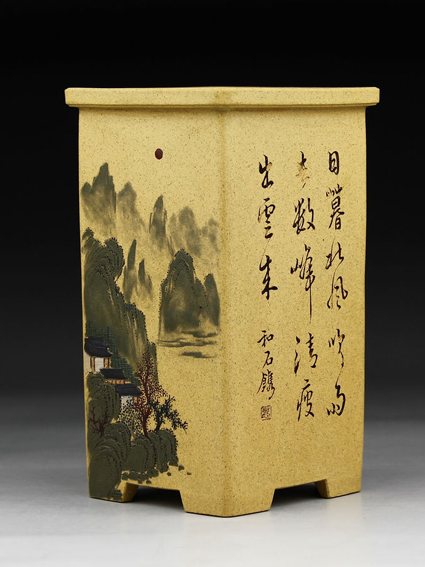 日暮北風吹雨
去数峰清瘦
出雲来
和石鐫